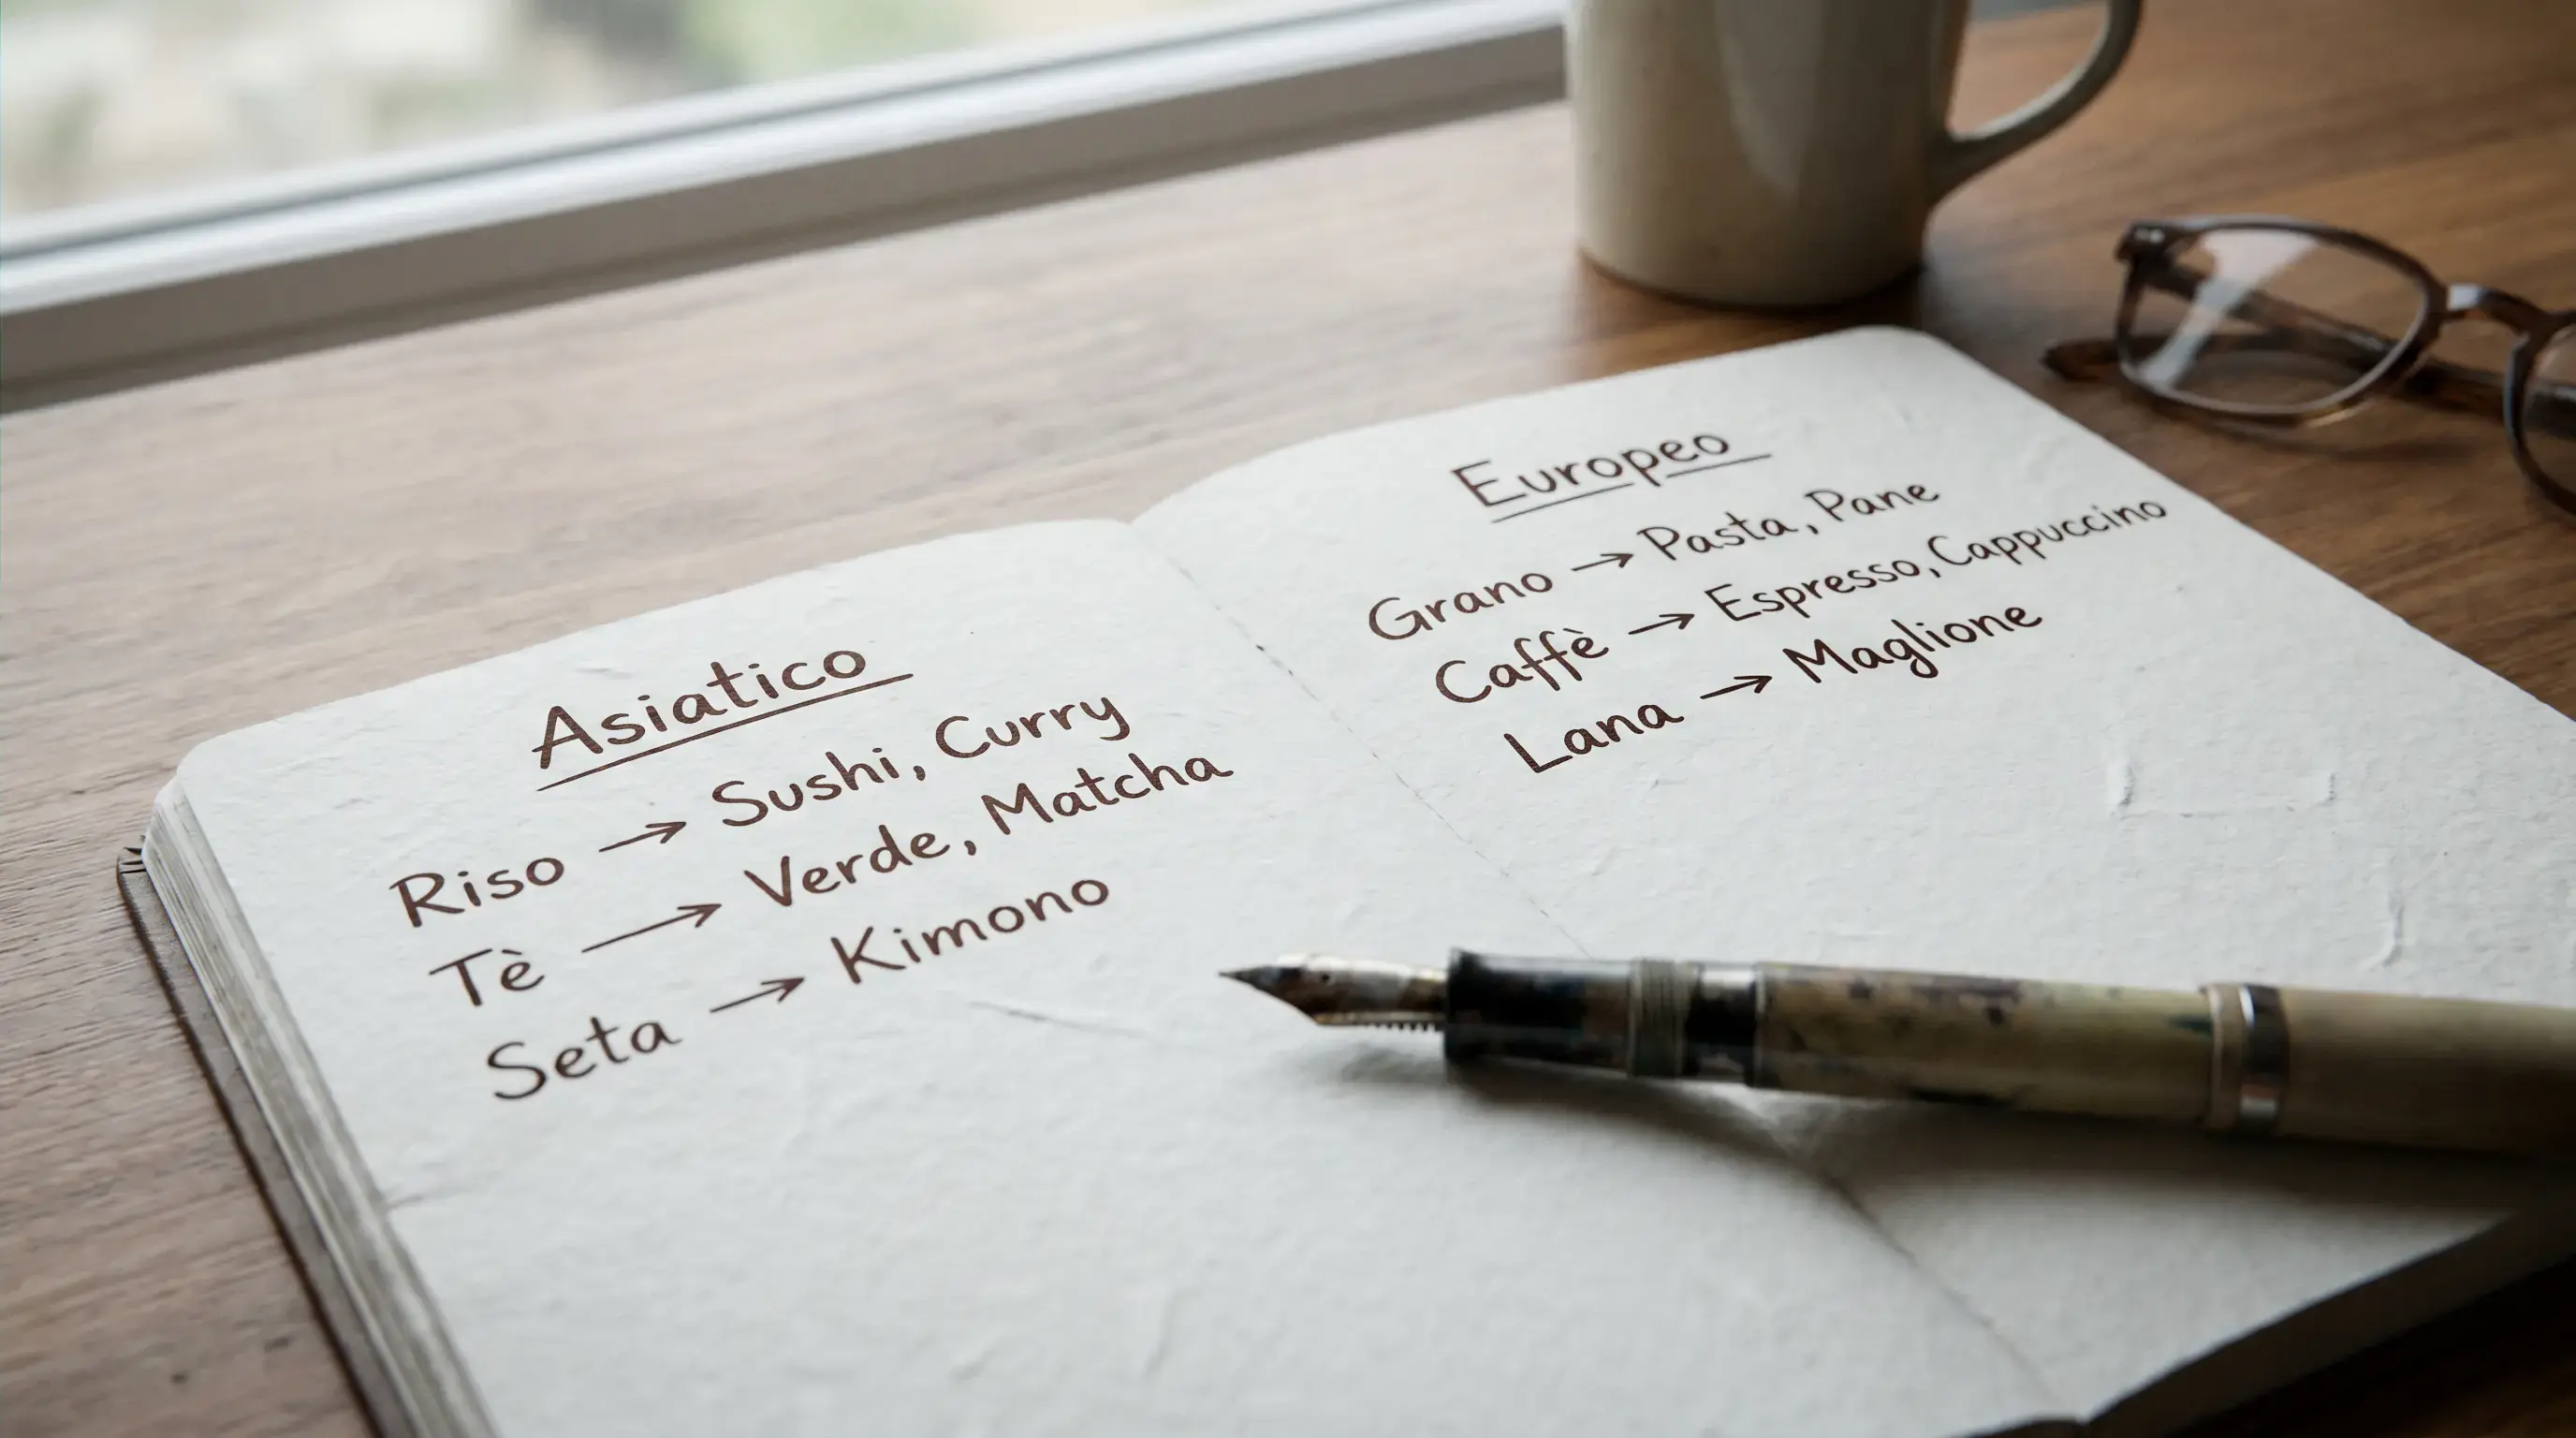 Asiatico
Riso → Sushi, Curry
Tè → Verde, Matcha
Seta → Kimono
Europeo
Grano → Pasta, Pane
Caffè → Espresso, Cappuccino
Lana → Maglione